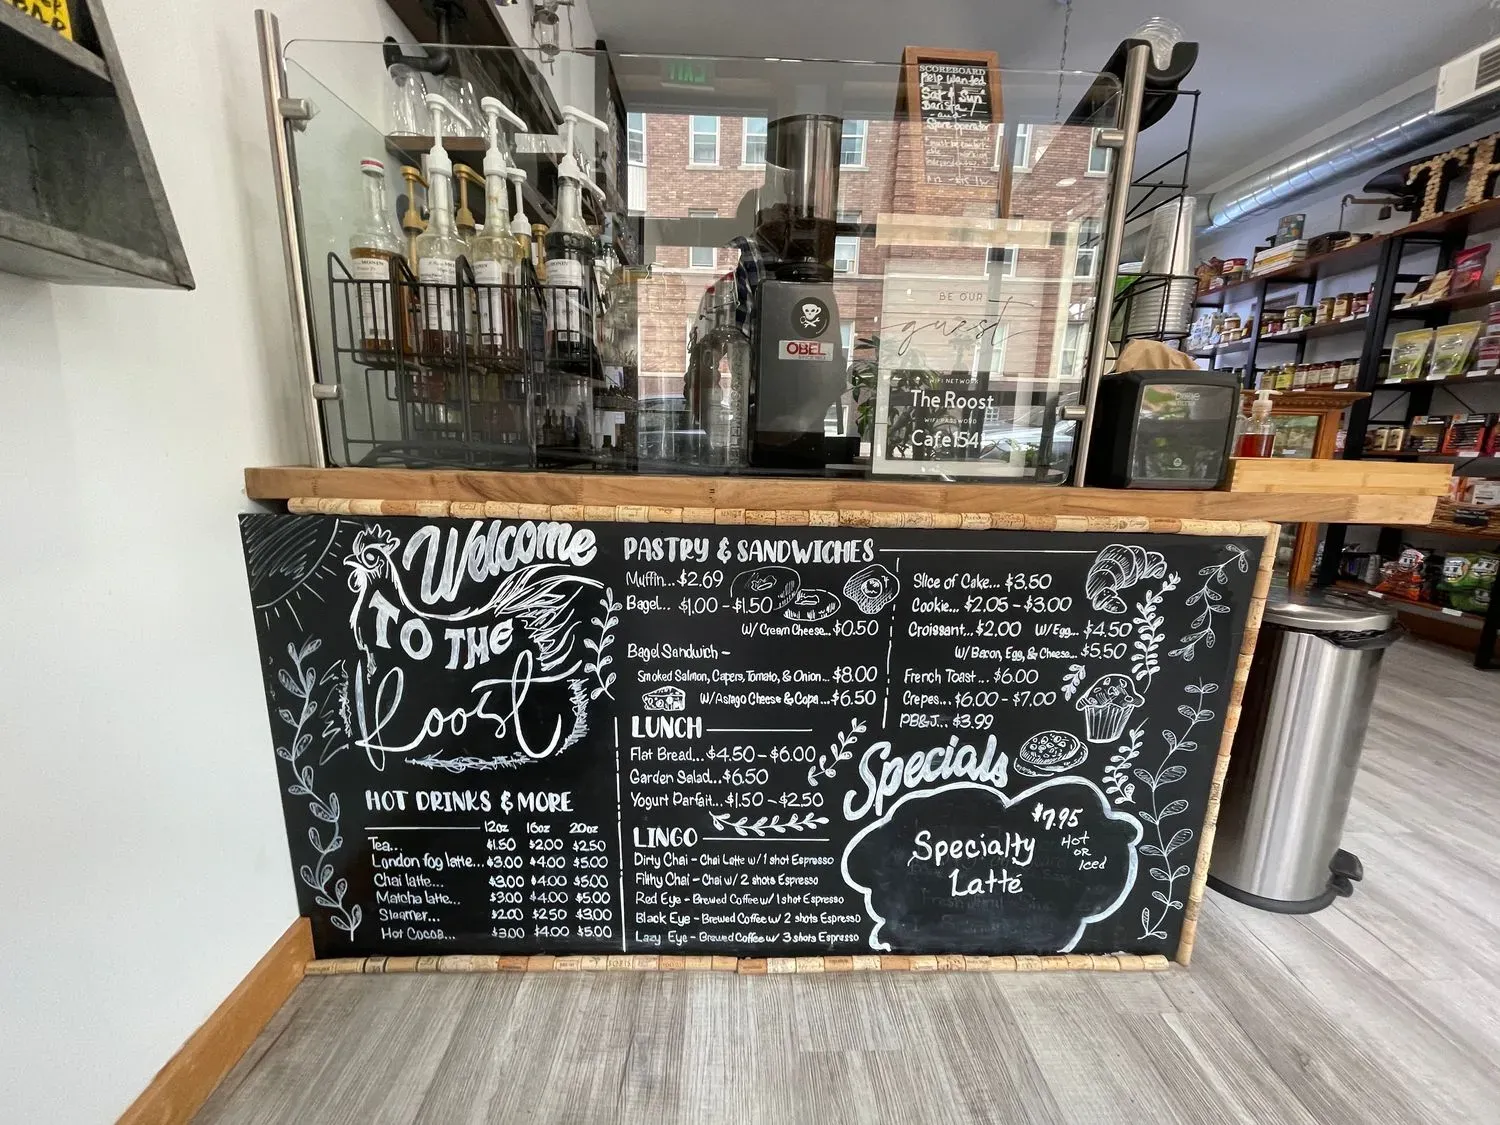 SCOREBOARD
Help Wanted
Sat & Sun
Barista/
and
Store operator
BE OUR
guest
WIFI NETWORK
The Roost
WIFI PASSWORD
Cafe154
OBEL
MONIN
DIXIE
Welcome
TO THE
Roost
HOT DRINKS & MORE
12oz 16oz 20oz
Tea... $1.50 $2.00 $2.50
London fog latte... $3.00 $4.00 $5.00
Chai latte... $3.00 $4.00 $5.00
Matcha latte... $3.00 $4.00 $5.00
Steamer... $2.00 $2.50 $3.00
Hot Cocoa... $3.00 $4.00 $5.00
PASTRY & SANDWICHES
Muffin... $2.69
Bagel... $1.00 - $1.50
W/ Cream Cheese... $0.50
Bagel Sandwich -
Smoked Salmon, Capers, Tomato, & Onion... $8.00
W/ Asiago Cheese & Copa... $6.50
Slice of Cake... $3.50
Cookie... $2.05 - $3.00
Croissant... $2.00 W/ Egg... $4.50
W/ Bacon, Egg, & Cheese... $5.50
French Toast... $6.00
Crepes... $6.00 - $7.00
PB&J... $3.99
LUNCH
Flat Bread... $4.50 - $6.00
Garden Salad... $6.50
Yogurt Parfait... $1.50 - $2.50
LINGO
Dirty Chai - Chai Latte w/ 1 shot Espresso
Filthy Chai - Chai w/ 2 shots Espresso
Red Eye - Brewed Coffee w/ 1 shot Espresso
Black Eye - Brewed Coffee w/ 2 shots Espresso
Lazy Eye - Brewed Coffee w/ 3 shots Espresso
Specials
$7.95
Specialty
Latté
Hot
OR
Iced